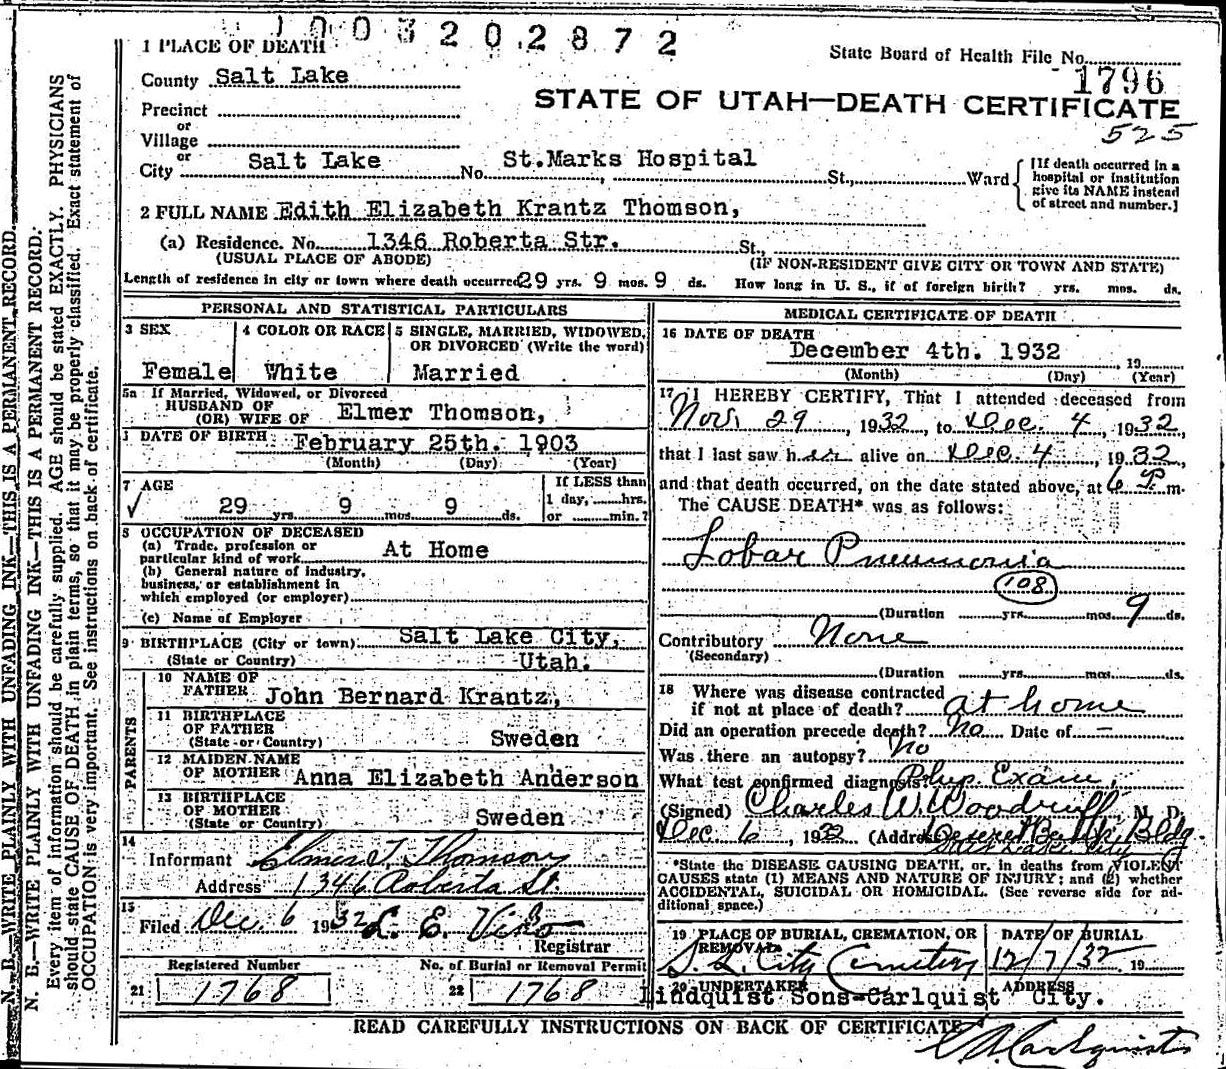 1003202872
1 PLACE OF DEATH
State Board of Health File No.
1796
County Salt Lake
STATE OF UTAH—DEATH CERTIFICATE
Precinct
525
or
Village
or
City Salt Lake No. St.Marks Hospital St., Ward
[If death occurred in a
hospital or institution
give its NAME instead
of street and number.]
2 FULL NAME Edith Elizabeth Krantz Thomson,
(a) Residence. No. 1346 Roberta Str. St.,
(USUAL PLACE OF ABODE) (IF NON-RESIDENT GIVE CITY OR TOWN AND STATE)
Length of residence in city or town where death occurred 29 yrs. 9 mos. 9 ds. How long in U. S., if of foreign birth? yrs. mos. ds.
PERSONAL AND STATISTICAL PARTICULARS
3 SEX
Female
4 COLOR OR RACE
White
5 SINGLE, MARRIED, WIDOWED,
OR DIVORCED (Write the word)
Married
5a If Married, Widowed, or Divorced
HUSBAND OF
(OR) WIFE OF Elmer Thomson,
DATE OF BIRTH February 25th. 1903
(Month) (Day) (Year)
7 AGE
29 yrs. 9 mos. 9 ds.
If LESS than
1 day, hrs.
or min.?
8 OCCUPATION OF DECEASED
(a) Trade, profession or
particular kind of work At Home
(b) General nature of industry,
business, or establishment in
which employed (or employer)
(c) Name of Employer
9 BIRTHPLACE (City or town) Salt Lake City,
(State or Country) Utah.
PARENTS
10 NAME OF
FATHER John Bernard Krantz,
11 BIRTHPLACE
OF FATHER
(State or Country) Sweden
12 MAIDEN NAME
OF MOTHER Anna Elizabeth Anderson
13 BIRTHPLACE
OF MOTHER
(State or Country) Sweden
14
Informant Elmer T. Thomson
Address 1346 Roberta St.
15
Filed Dec. 6 1932 L. E. Viko
Registrar
Registered Number
21 1768
No. of Burial or Removal Permit
22 1768
MEDICAL CERTIFICATE OF DEATH
16 DATE OF DEATH
December 4th. 1932 19
(Month) (Day) (Year)
17 I HEREBY CERTIFY, That I attended deceased from
Nov. 29, 1932, to Dec. 4, 1932,
that I last saw her alive on Dec. 4, 1932,
and that death occurred, on the date stated above, at 6 P.m.
The CAUSE DEATH* was as follows:
Lobar Pneumonia
108
(Duration yrs. mos. 9 ds.
Contributory None
(Secondary)
(Duration yrs. mos. ds.
18 Where was disease contracted
if not at place of death? at home
Did an operation precede death? No Date of —
Was there an autopsy? No
What test confirmed diagnosis? Phys. Exam.
(Signed) Charles W. Woodruff, M. D.
Dec 6, 1932 (Address) Deseret Bank Bldg.
Salt Lake City
*State the DISEASE CAUSING DEATH, or, in deaths from VIOLENT
CAUSES state (1) MEANS AND NATURE OF INJURY; and (2) whether
ACCIDENTAL, SUICIDAL OR HOMICIDAL. (See reverse side for ad-
ditional space.)
19 PLACE OF BURIAL, CREMATION, OR
REMOVAL
S. L. City Cemetery
DATE OF BURIAL
12/7/32 19
20 UNDERTAKER ADDRESS
Lindquist Sons-Carlquist City.
READ CAREFULLY INSTRUCTIONS ON BACK OF CERTIFICATE
N. B.—WRITE PLAINLY WITH UNFADING INK—THIS IS A PERMANENT RECORD.
N. B.—WRITE PLAINLY WITH UNFADING INK—THIS IS A PERMANENT RECORD.
Every item of information should be carefully supplied. AGE should be stated EXACTLY. PHYSICIANS
should state CAUSE OF DEATH in plain terms, so that it may be properly classified. Exact statement of
OCCUPATION is very important. See instructions on back of certificate.